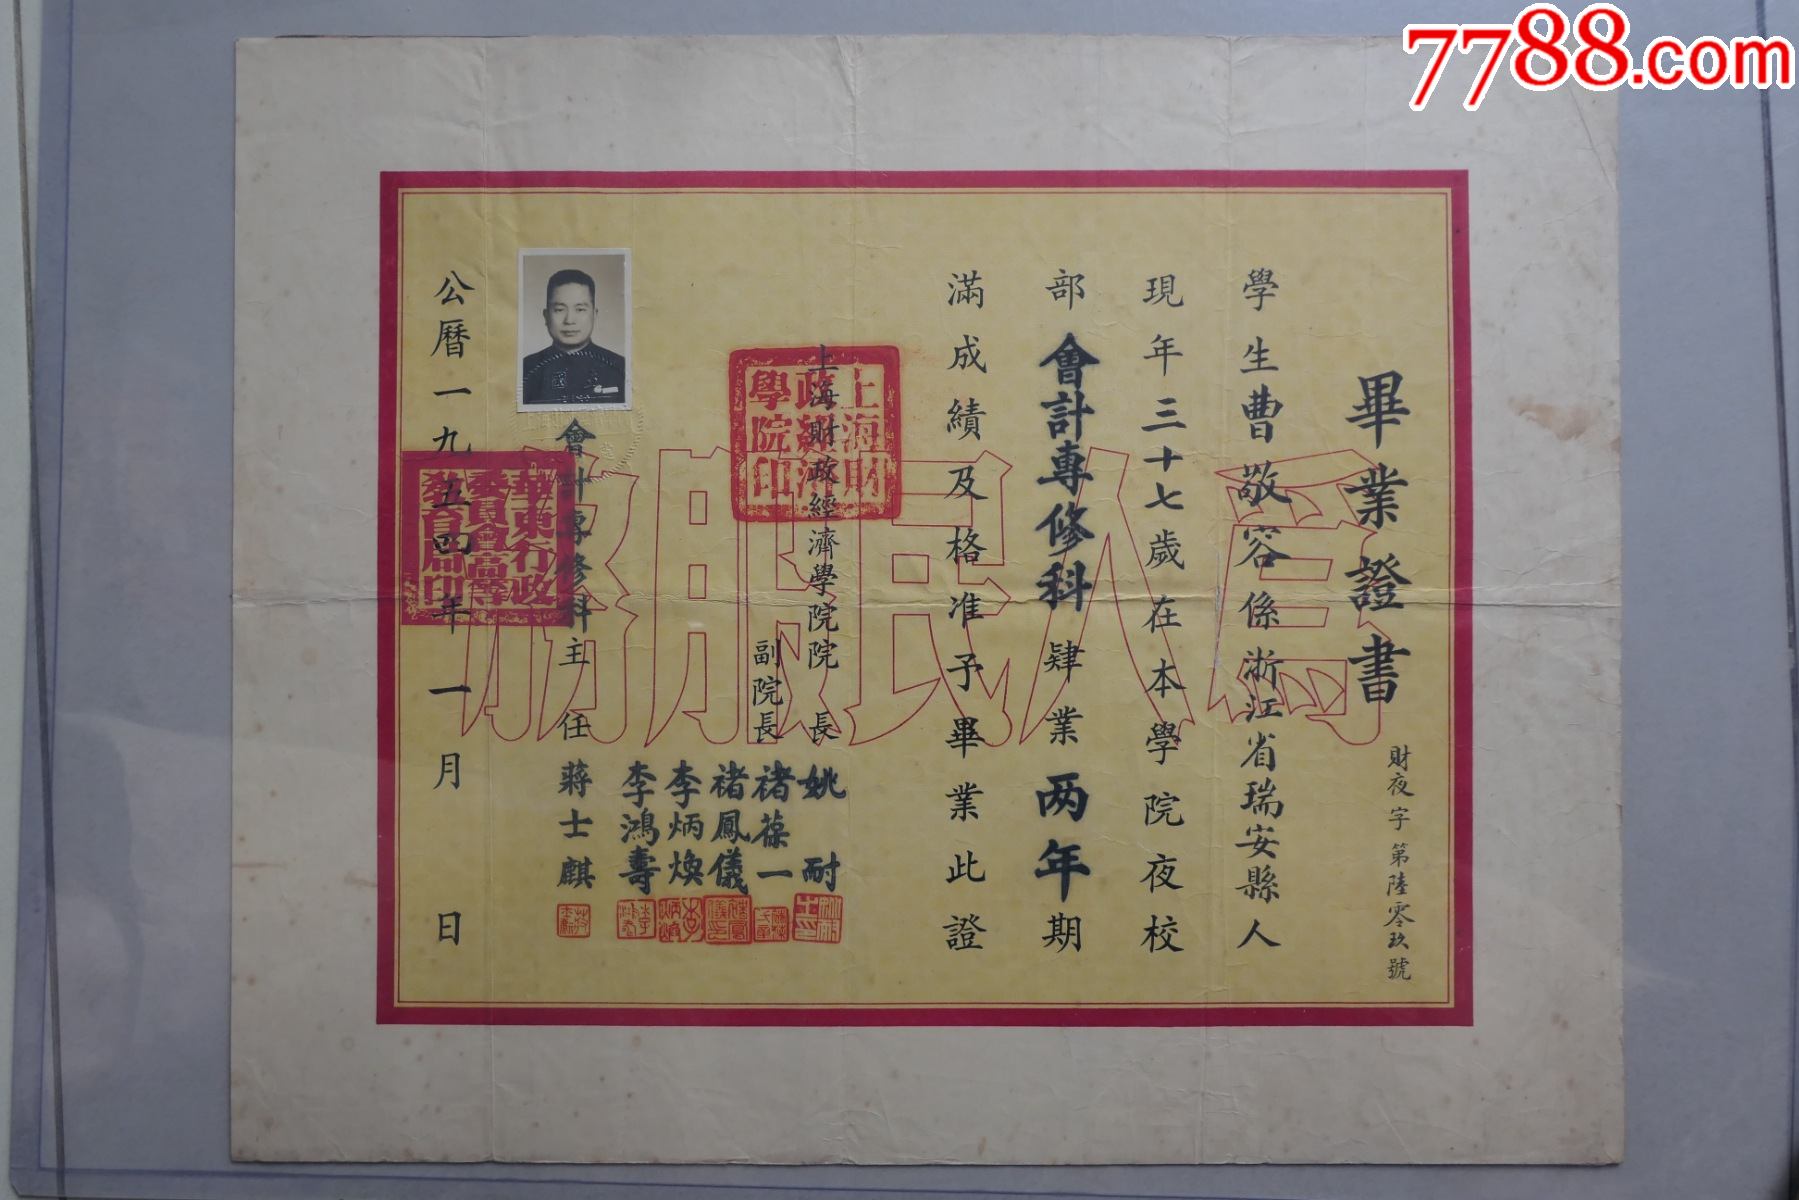 7788.com
畢業證書
財夜字第陸零玖號
學生曹敬容係浙江省瑞安縣人
現年三十七歲在本學院夜校
部會計專修科肄業两年期
滿成績及格准予畢業此證
上海財政經濟學院院長 姚耐
副院長 褚葆一
褚鳳儀
李炳煥
李鴻壽
會計專修科主任 蔣士麒
公曆一九五四年一月 日
為人民服務
上海財政經濟學院印
華東行政委員會高等教育局印